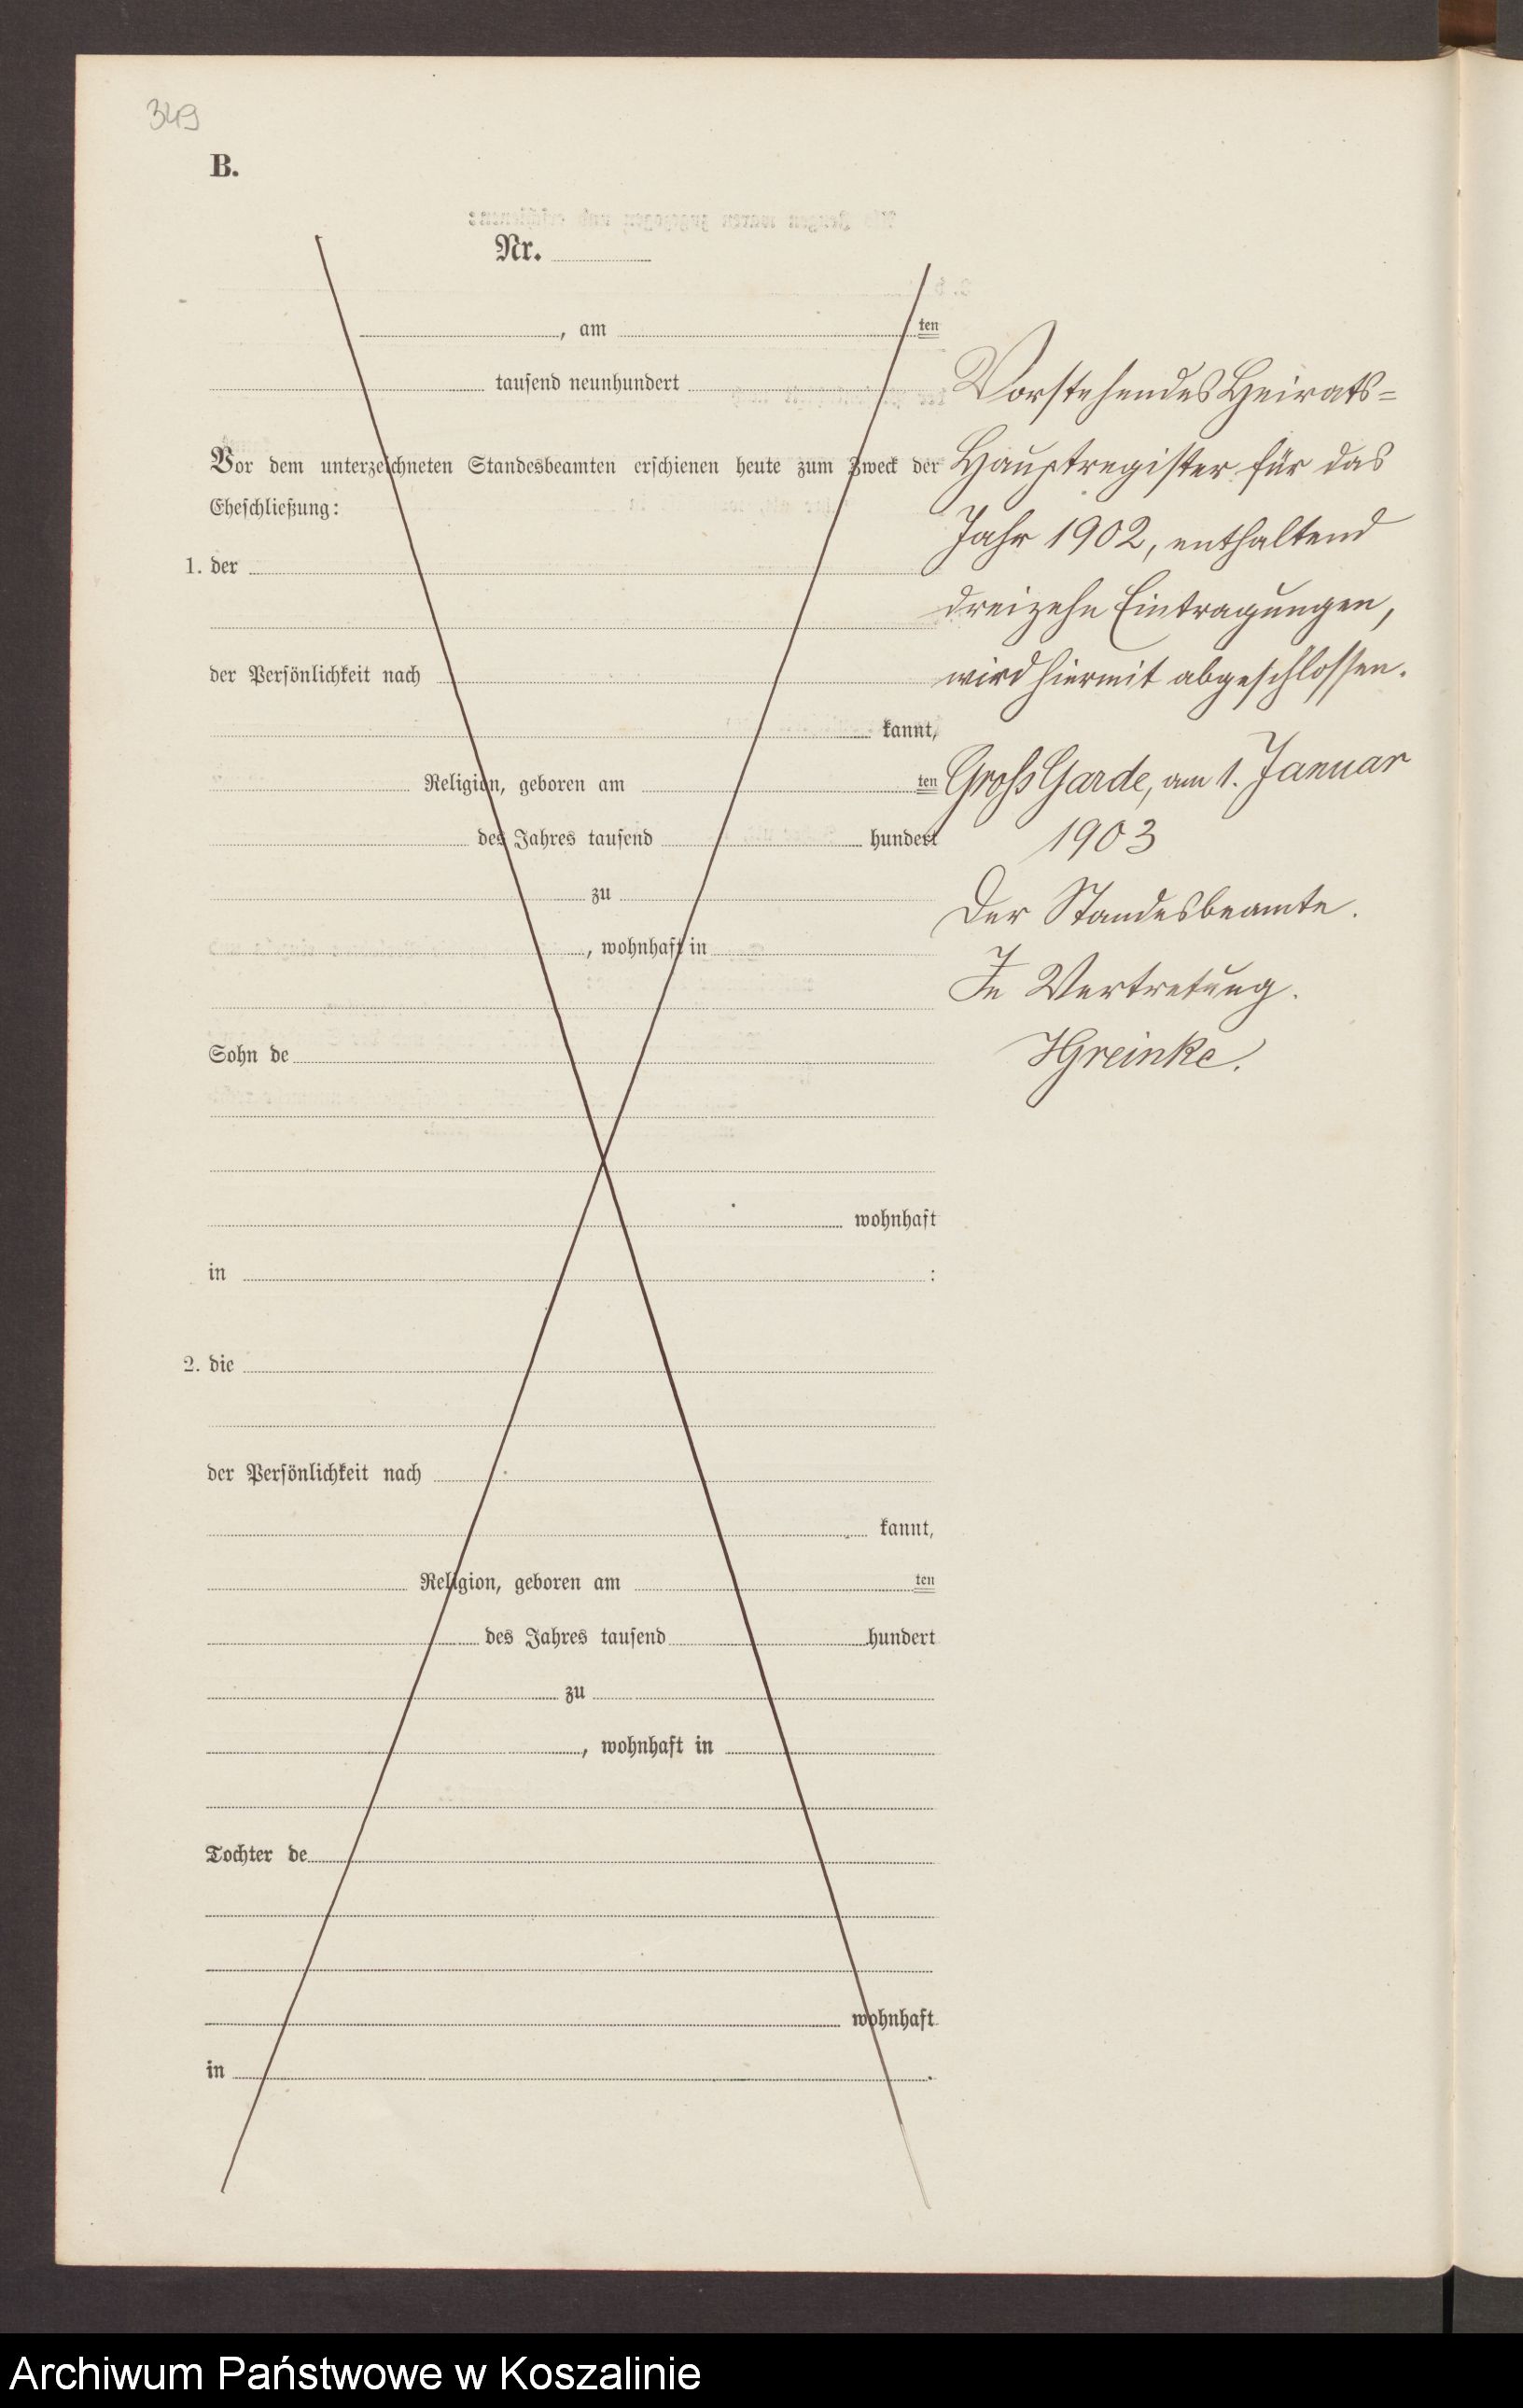 349
B.
Nr.
, am ten
tausend neunhundert
Vor dem unterzeichneten Standesbeamten erschienen heute zum Zweck der
Eheschließung:
1. der
der Persönlichkeit nach
kannt,
Religion, geboren am ten
des Jahres tausend hundert
zu
, wohnhaft in
Sohn de
wohnhaft
in :
2. die
der Persönlichkeit nach
kannt,
Religion, geboren am ten
des Jahres tausend hundert
zu
, wohnhaft in
Tochter de
wohnhaft
in .
Vorstehendes Heirats-
Hauptregister für das
Jahr 1902, enthaltend
dreizehn Eintragungen,
wird hiermit abgeschlossen.
Groß Garde, am 1. Januar
1903
Der Standesbeamte.
In Vertretung.
HGreinke.
Archiwum Państwowe w Koszalinie